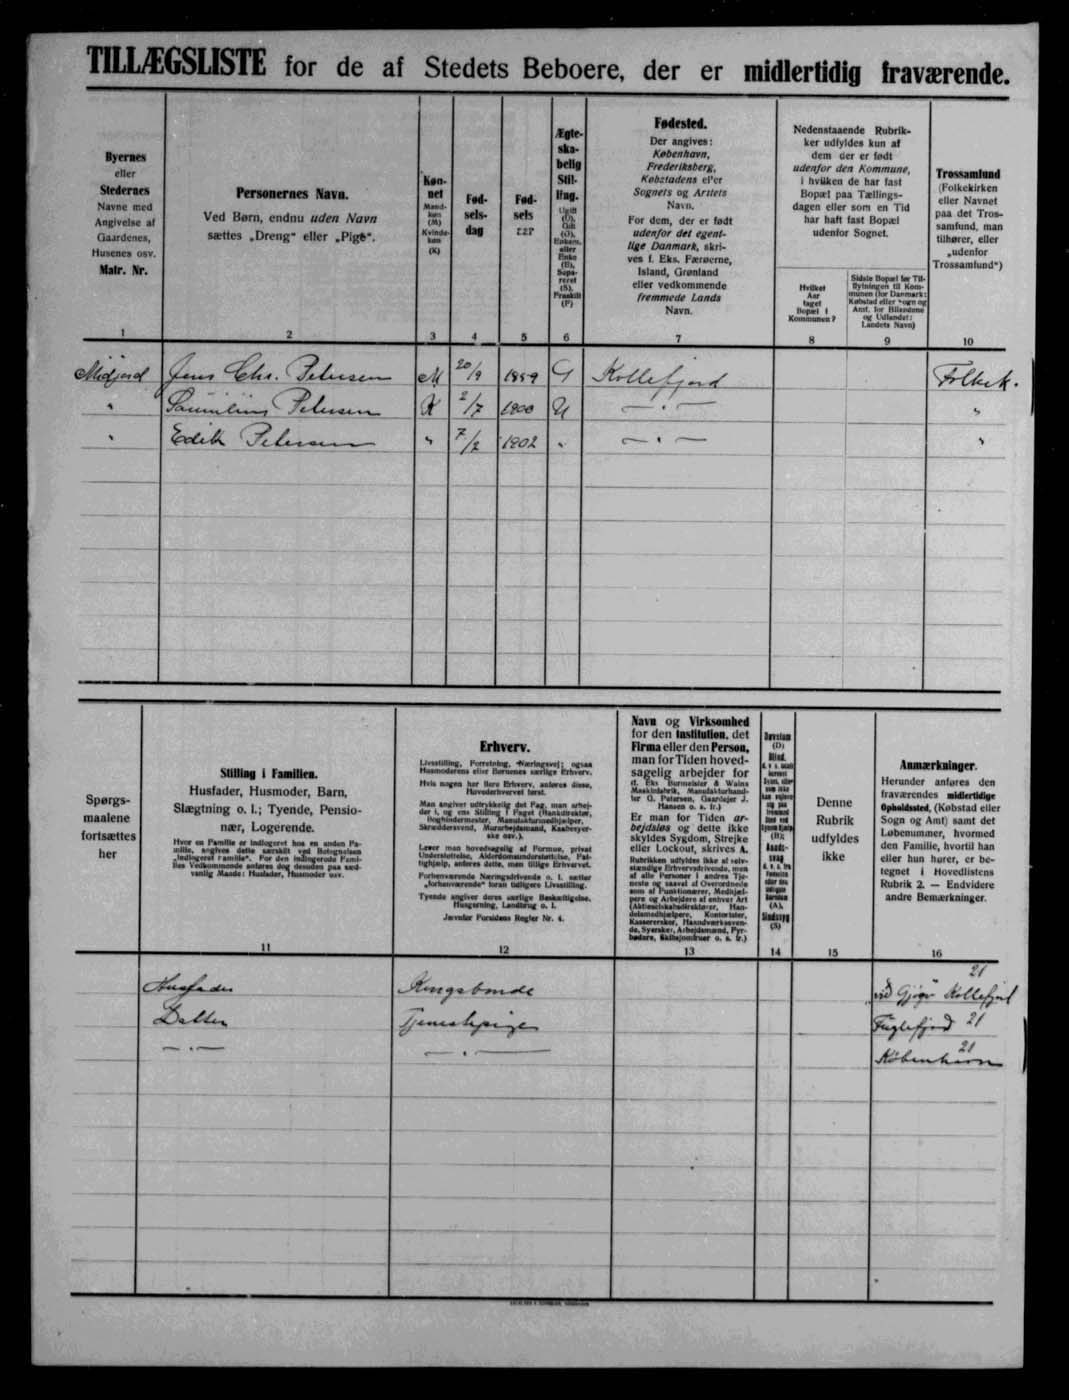 TILLÆGSLISTE for de af Stedets Beboere, der er midlertidig fraværende.
Byernes
eller
Stedernes
Navne med
Angivelse af
Gaardenes,
Husenes osv.
Matr. Nr.
1
Personernes Navn.
Ved Børn, endnu uden Navn
sættes „Dreng" eller „Pige".
2
Køn-
net
Mand-
køn
(M)
Kvinde-
køn
(K)
3
Fød-
sels-
dag
4
Fød-
sels
5
Ægte-
ska-
belig
Stil-
ling.
Ugift
(U),
Gift
(G),
Enkem.
eller
Enke
(E),
Sepa-
reret
(S),
Fraskilt
(F)
6
Fødested.
Der angives:
København,
Frederiksberg,
Købstadens eller
Sognets og Amtets
Navn.
For dem, der er født
udenfor det egent-
lige Danmark, skri-
ves f. Eks. Færøerne,
Island, Grønland
eller vedkommende
fremmede Lands
Navn.
7
Nedenstaaende Rubrik-
ker udfyldes kun af
dem der er født
udenfor den Kommune,
i hvilken de har fast
Bopæl paa Tællings-
dagen eller som en Tid
har haft fast Bopæl
udenfor Sognet.
Hvilket
Aar
taget
Bopæl i
Kommunen?
8
Sidste Bopæl før Til-
flytningen til Kom-
munen (for Danmark:
Købstad eller Sogn og
Amt, for Bilandene
og Udlandet:
Landets Navn)
9
Trossamfund
(Folkekirken
eller Navnet
paa det Tros-
samfund, man
tilhører, eller
„udenfor
Trossamfund")
10
Midjord Jens Chr. Petersen M 20/9 1859 G Kollefjord Folkek.
" Petersen K 2/7 1900 U — " — "
" Edith Petersen " 7/2 1902 " — " — "
Spørgs-
maalene
fortsættes
her
Stilling i Familien.
Husfader, Husmoder, Barn,
Slægtning o. l.; Tyende, Pensio-
nær, Logerende.
Hvor en Familie er indlogeret hos en anden Fa-
milie, angives dette særskilt ved Betegnelsen
„Indlogeret Familie". For den indlogerede Fami-
lies Vedkommende anføres dog desuden paa sæd-
vanlig Maade: Husfader, Husmoder osv.
11
Erhverv.
Livsstilling, Forretning, Næringsvej; ogsaa
Husmoderens eller Børnenes særlige Erhverv.
Hvis nogen har flere Erhverv, anføres disse,
Hovederhvervet først.
Man angiver udtrykkelig det Fag, man arbej-
der i, og ens Stilling i Faget (Bankdirektør,
Bogbindermester, Manufakturmedhjælper,
Skræddersvend, Murarbejdsmand, Kaabesyer-
ske osv.).
Lever man hovedsagelig af Formue, privat
Understøttelse, Alderdomsunderstøttelse, Fat-
tighjælp, anføres dette, men tillige Erhvervet.
Forhenværende Næringsdrivende o. l. sætter
„forhenværende" foran tidligere Livsstilling.
Tyende angiver deres særlige Beskæftigelse,
Husgerning, Landbrug o. l.
Jævnfør Forsidens Regler Nr. 4.
12
Navn og Virksomhed
for den Institution, det
Firma eller den Person,
man for Tiden hoved-
sagelig arbejder for
(f. Eks Burmeister & Wains
Maskinfabrik, Manufakturhand-
ler G. Petersen, Gaardejer J.
Hansen o. s. fr.)
Er man for Tiden ar-
bejdsløs og dette ikke
skyldes Sygdom, Strejke
eller Lockout, skrives A.
Rubrikken udfyldes ikke af selv-
stændige Erhvervsdrivende, men
af alle Personer i andres Tje-
neste og saavel af Overordnede
som af Funktionærer, Medhjæl-
pere og Arbejdere af enhver Art
(Aktieselskabsdirektører, Han-
delsmedhjælpere, Kontorister,
Kasserersker, Haandværkssven-
de, Syersker, Arbejdsmænd, Fyr-
bødere, Skibsjomfruer o. s. fr.)
13
Døvstum
(D)
Blind.
(B);
Aands-
svag
(A),
Sindssyg
(S)
14
Denne
Rubrik
udfyldes
ikke
15
Anmærkninger.
Herunder anføres den
fraværendes midlertidige
Opholdssted, (Købstad eller
Sogn og Amt) samt det
Løbenummer, hvormed
den Familie, hvortil han
eller hun hører, er be-
tegnet i Hovedlistens
Rubrik 2. — Endvidere
andre Bemærkninger.
16
Husfader Kongsbonde ved Gjógv Kollefjord 21
Datter Tjenestepige Fuglefjord 21
— " — — " — København 21